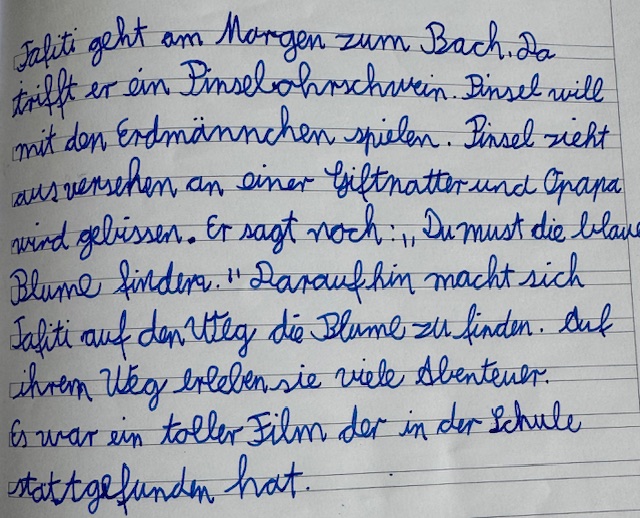 Jafiti geht am Morgen zum Bach. Da
trifft er ein Pinselohrschwein. Pinsel will
mit den Erdmännchen spielen. Pinsel zieht
aus versehen an einer Giftnatter und Opapa
wird gebissen. Er sagt noch: „Du must die blaue
Blume finden." Daraufhin macht sich
Jafiti auf den Weg die Blume zu finden. Auf
ihrem Weg erleben sie viele Abenteuer.
Es war ein toller Film der in der Schule
stattgefunden hat.